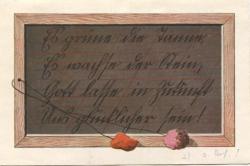 Es grüne die Tanne,
Es wachse der Stein,
Gott lasse in Zukunft
Uns glücklicher sein!